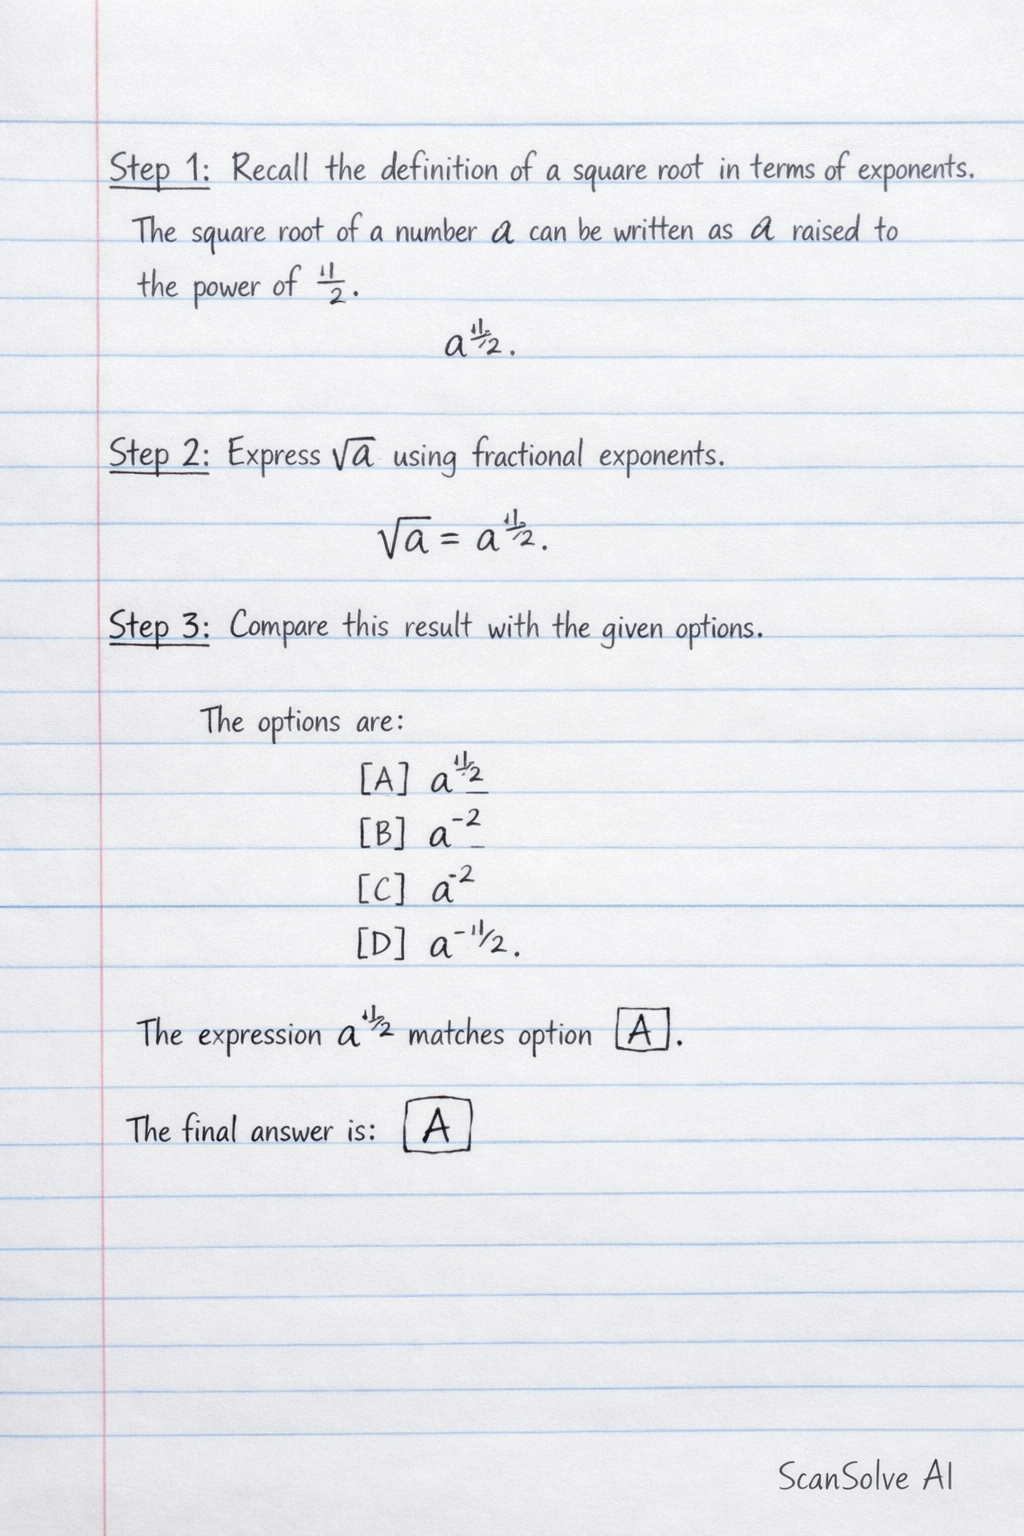 Step 1: Recall the definition of a square root in terms of exponents.
The square root of a number a can be written as a raised to
the power of 11/2.
a^11/2.
Step 2: Express √a using fractional exponents.
√a = a^11/2.
Step 3: Compare this result with the given options.
The options are:
[A] a^11/2
[B] a^-2
[C] a^-2
[D] a^-11/2.
The expression a^11/2 matches option A.
The final answer is: A
ScanSolve AI